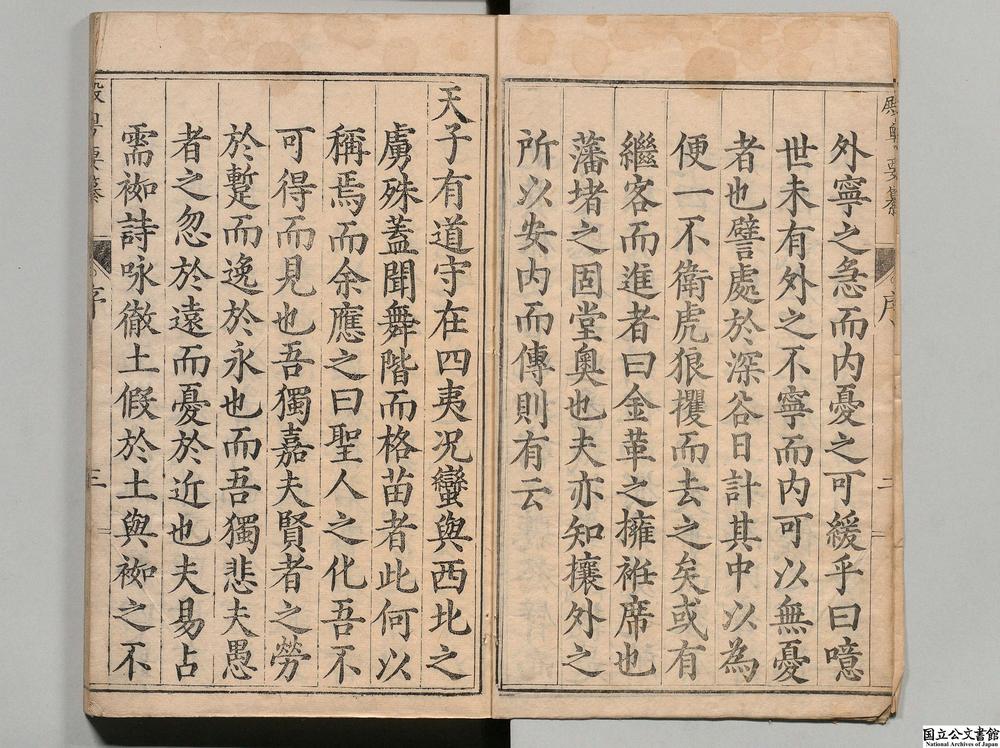 外寧之急而内憂之可緩乎曰噫
世未有外之不寧而内可以無憂
者也譬處於深谷日計其中以為
便一不衛虎狼攫而去之矣或有
繼客而進者曰金革之擁袵席也
藩堵之固堂奥也夫亦知攘外之
所以安内而傳則有云
天子有道守在四夷况蠻與西北之
虜殊蓋聞舞階而格苗者此何以
稱焉而余應之曰聖人之化吾不
可得而見也吾獨嘉夫賢者之勞
於蹔而逸於永也而吾獨悲夫愚
者之忽於遠而憂於近也夫易占
需袽詩咏徹土假於土與袽之不
序
三
国立公文書館
National Archives of Japan